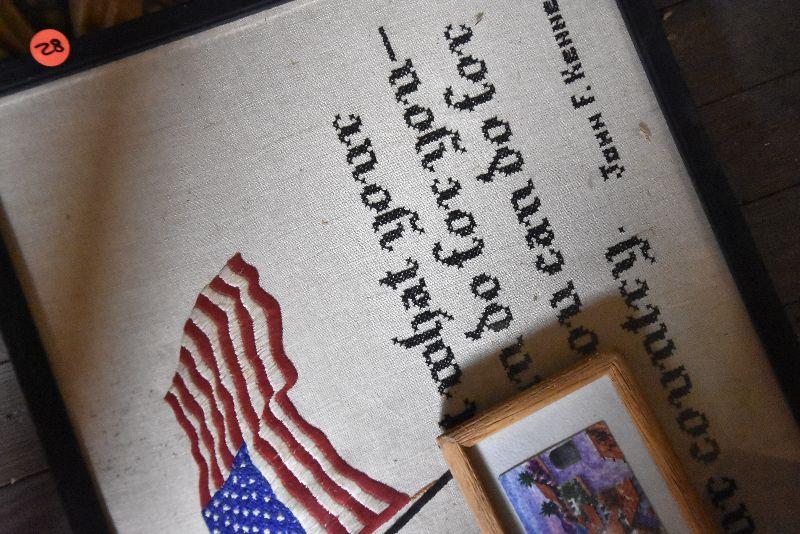 28
what your
do for you—
you can do for
your country.
John F. Kenne